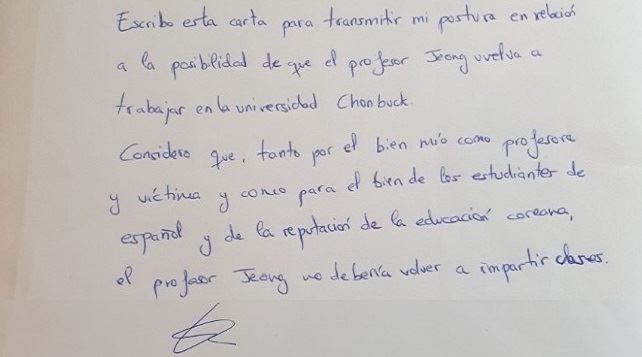 Escribo esta carta para transmitir mi postura en relación
a la posibilidad de que el profesor Jeong vuelva a
trabajar en la universidad Chonbuck.
Considero que, tanto por el bien mío como profesora
y víctima y como para el bien de los estudiantes de
español y de la reputación de la educación coreana,
el profesor Jeong no debería volver a impartir clases.